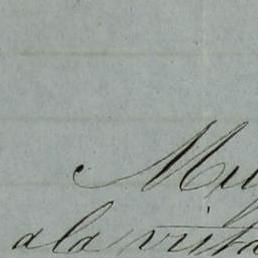 Muy
a la vista